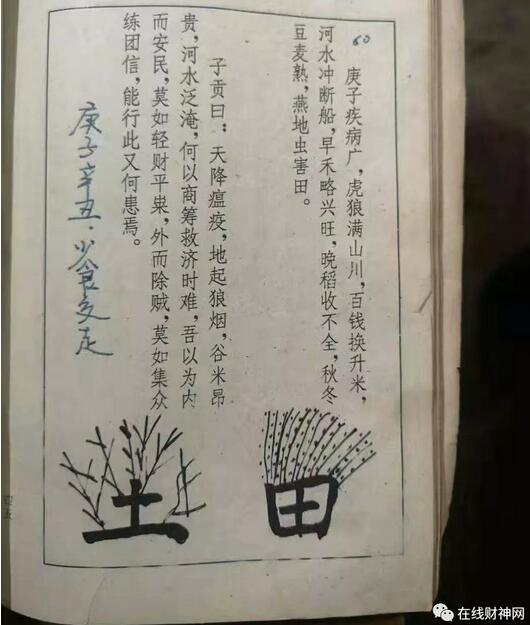 60
庚子疾病广，虎狼满山川，百钱换升米，
河水冲断船，早禾略兴旺，晚稻收不全，秋冬
豆麦熟，燕地虫害田。
子贡曰：天降瘟疫，地起狼烟，谷米昂
贵，河水泛淹，何以商筹救济时难，吾以为内
而安民，莫如轻财平粜，外而除贼，莫如集众
练团信，能行此又何患焉。
庚子辛丑·少食多走
田
土
四五
在线财神网